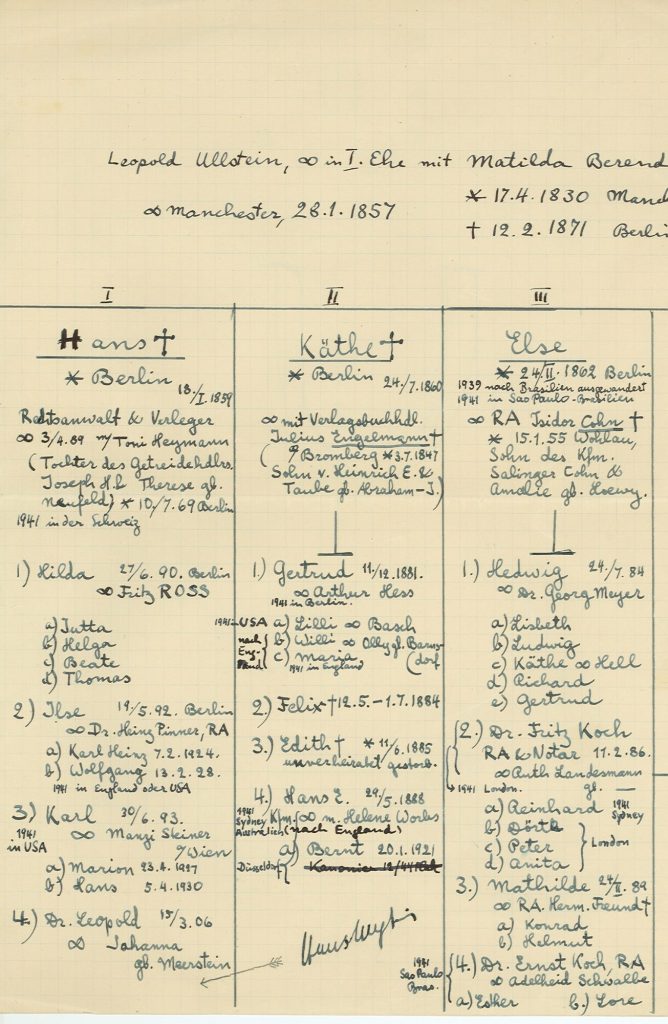 Leopold Ullstein, ∞ in I. Ehe mit Matilda Berend
∞ Manchester, 28.1.1857
* 17.4.1830 Manch
† 12.2.1871 Berlin
I
Hans †
* Berlin 18./I.1859
Rechtsanwalt & Verleger
∞ 3/4.89 m/ Toni Heymann
(Tochter des Getreidehdlrs.
Joseph H. & Therese gb.
Neufeld) * 10/7.69 Berlin
1941 in der Schweiz
1) Hilda 27/6.90. Berlin
∞ Fritz ROSS
a) Jutta
b) Helga
c) Beate
d) Thomas
2) Ilse 19/5.92. Berlin
∞ Dr. Heinz Pinner, RA
a) Karl Heinz 7.2.1924.
b) Wolfgang 13.2.28.
1941 in England oder USA
3) Karl 30/6.93.
1941 in USA
∞ Manzi Steiner
a/ Wien
a) Marion 23.4.1927
b) Hans 5.4.1930
4.) Dr. Leopold 15/3.06
∞ Johanna
gb. Meerstein
II
Käthe †
* Berlin 24./7.1860
∞ mit Verlagsbuchhdl.
Julius Engelmann †
(a/ Bromberg * 3.7.1847
Sohn v. Heinrich E. &
Taube gb. Abraham-J.)
1.) Gertrud 11/12.1881.
∞ Arthur Hess
1941 in Berlin.
1941 in USA a) Lilli ∞ Basch
nach England
b) Willi ∞ Olly gb. Barnsdorf
c) Maria
1941 in England
2) Felix † 12.5.-1.7.1884
3.) Edith † * 11/6.1885
unverheiratet gestorb.
4.) Hans E. 29/5.1888
1941 Sydney Australien
Kfm. ∞ m. Helene Worbs
(nach England)
a) Bernt 20.1.1921
Düsseldorf
III
Else
* 24/II.1862 Berlin
1939 nach Brasilien ausgewandert
1941 in Sao Paulo-Brasilien
∞ RA Isidor Cohn †
* 15.1.55 Wohlau,
Sohn des Kfm.
Salinger Cohn &
Amalie gb. Loewy.
1.) Hedwig 24./7.84
∞ Dr. Georg Meyer
a) Lisbeth
b) Ludwig
c) Käthe ∞ Hell
d) Richard
e) Gertrud
2.) Dr. Fritz Koch
RA & Notar 11.2.86.
∞ Ruth Landesmann
1941 London. gb. —
a) Reinhard 1941 Sydney
b) Dörte
c) Peter
d) Anita
London
3.) Mathilde 24/II.89
∞ RA. Herm. Freund †
a) Konrad
b) Helmut
1941 Sao Paulo Bras.
4.) Dr. Ernst Koch, RA
∞ Adelheid Schwalbe
a) Esther b.) Lore